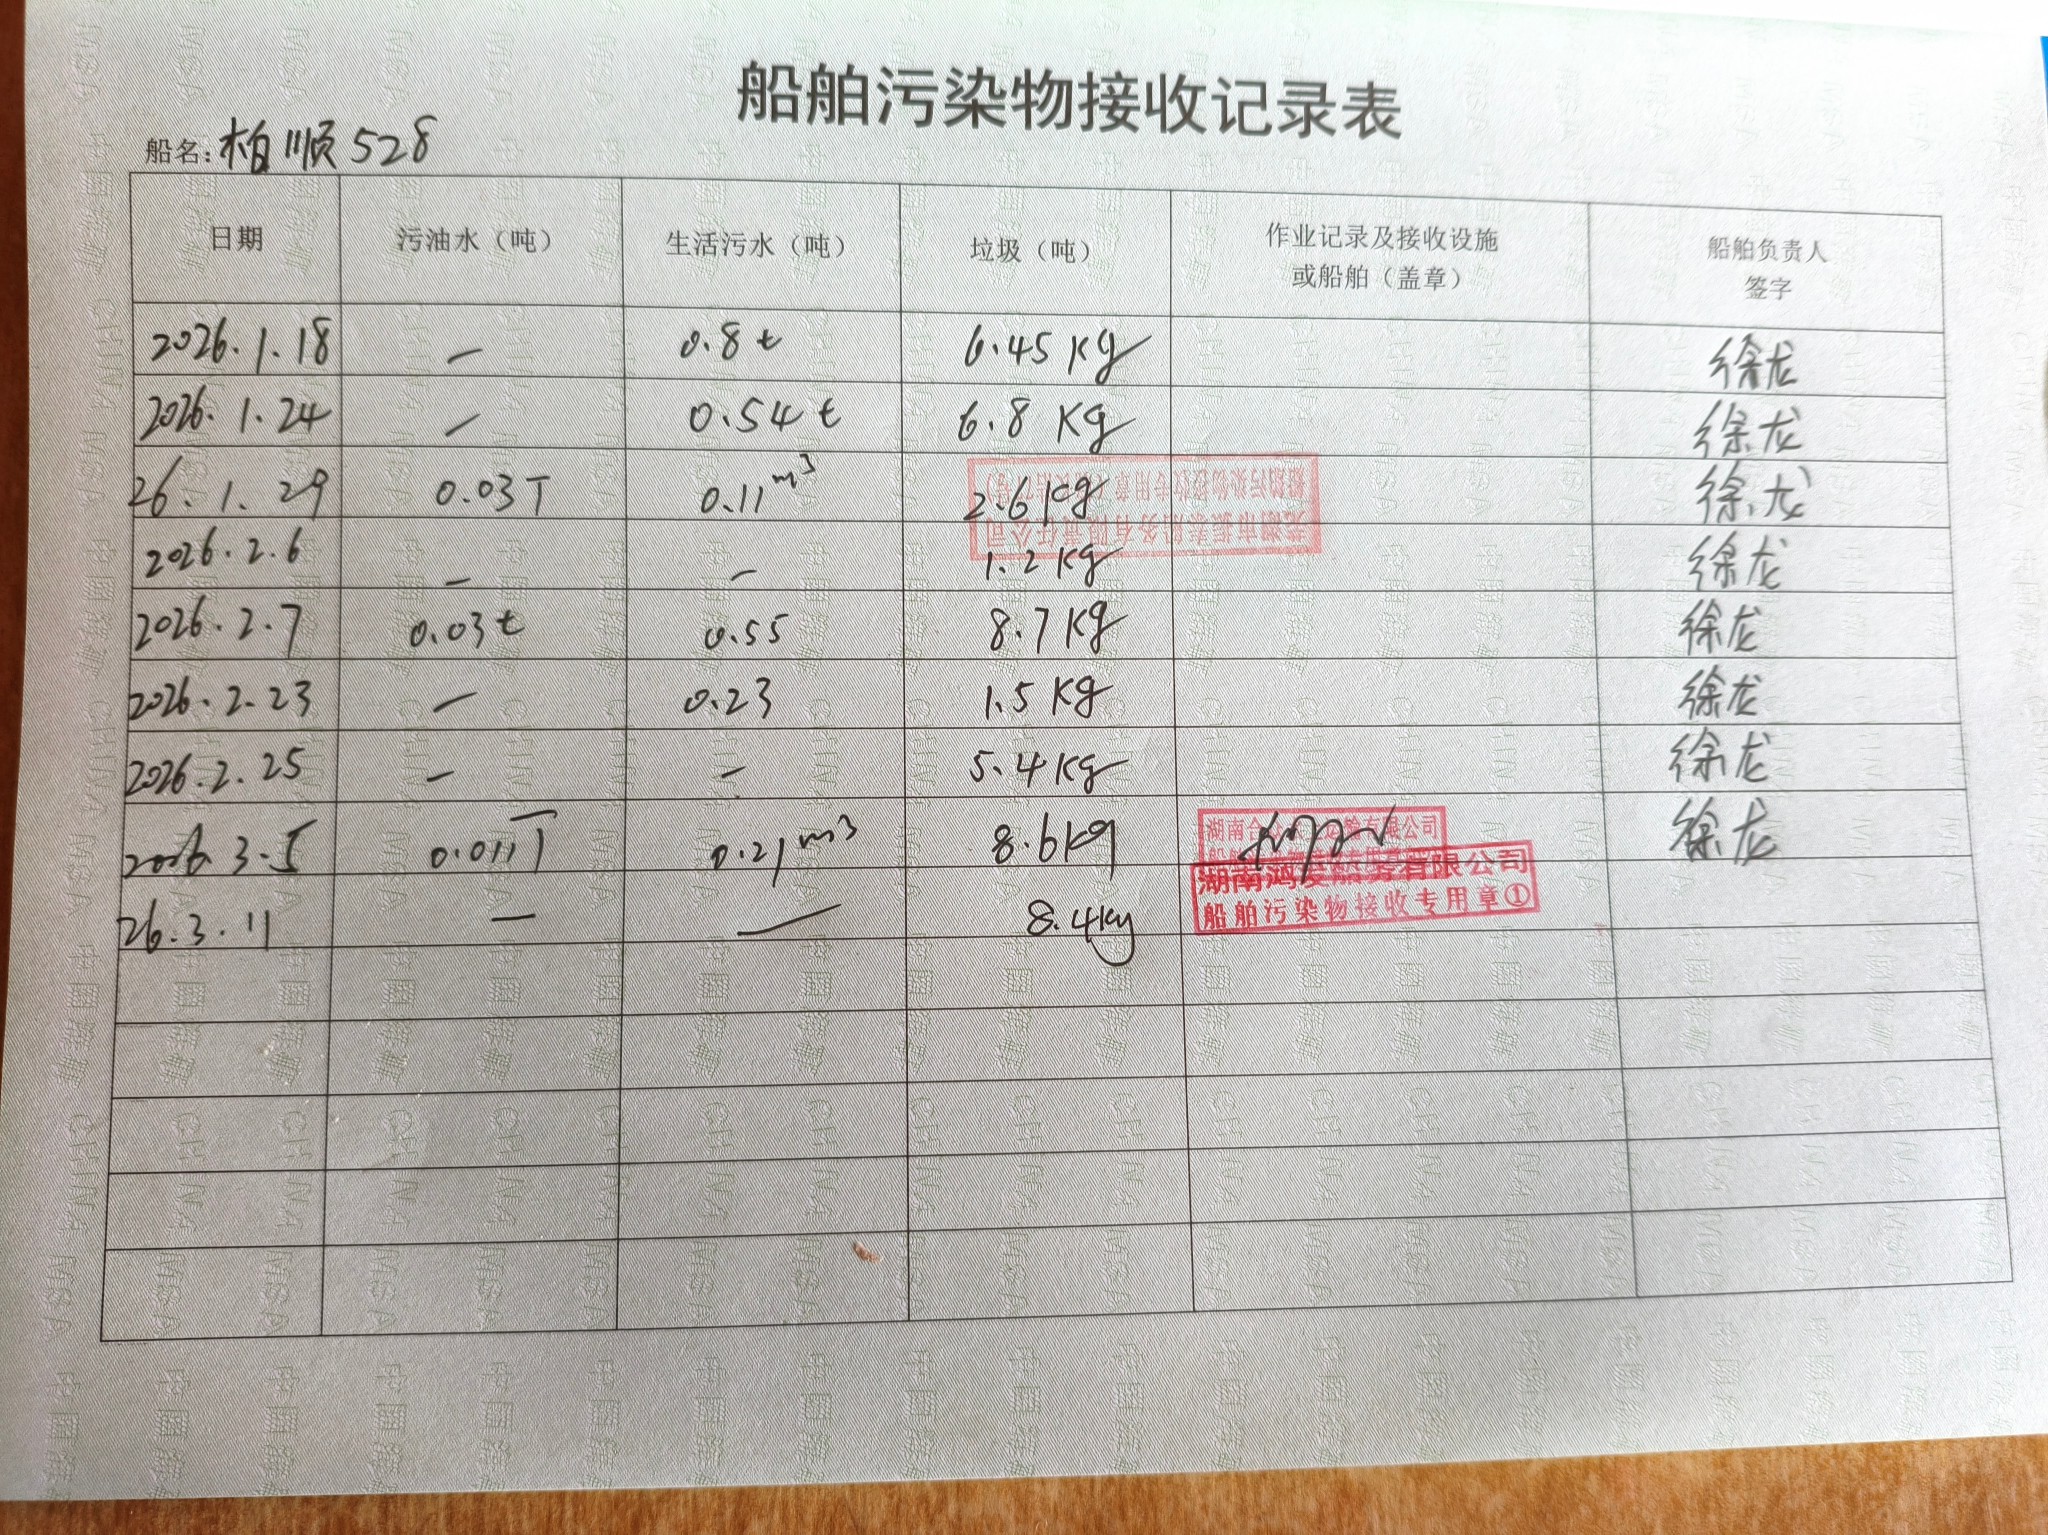 船舶污染物接收记录表
船名: 柏顺528
日期 污油水（吨） 生活污水（吨） 垃圾（吨） 作业记录及接收设施或船舶（盖章） 船舶负责人签字
2026.1.18 — 0.8t 6.45kg 徐龙
2026.1.24 — 0.54t 6.8kg 徐龙
26.1.29 0.03T 0.11m³ 2.6kg 徐龙
2026.2.6 — — 1.2kg 徐龙
2026.2.7 0.03t 0.55 8.7kg 徐龙
2026.2.23 — 0.23 1.5kg 徐龙
2026.2.25 — — 5.4kg 徐龙
2026.3.5 0.011T 0.21m³ 8.6kg 徐龙
26.3.11 — — 8.4kg
湖南鸿发船务有限公司
船舶污染物接收专用章①